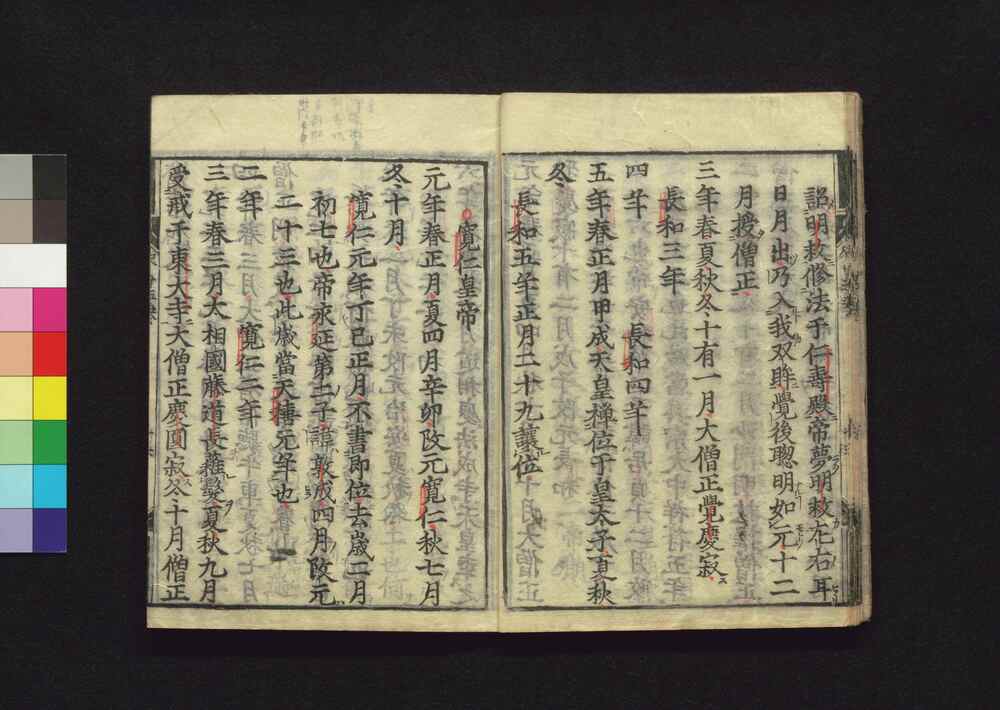 詔明救修法于仁壽殿帝夢明救左右耳
日月出乃入我双眸覺後聰明如元十二
月授僧正
三年春夏秋冬十有一月大僧正覺慶寂
長和三年
四年　長和四年
五年春正月甲戌天皇禅位于皇太子夏秋
冬
長和五年正月二十九讓位
寛仁皇帝
元年春正月夏四月辛卯改元寛仁秋七月
冬十月
寛仁元年丁巳正月不書即位去歳二月
初七也帝永延第二子諱敦成四月改元
二十三也此歳當天禧元年也
二年　寛仁二年
三年春三月太相國藤道長薙髮夏秋九月
受戒于東大寺大僧正慶圓寂冬十月僧正